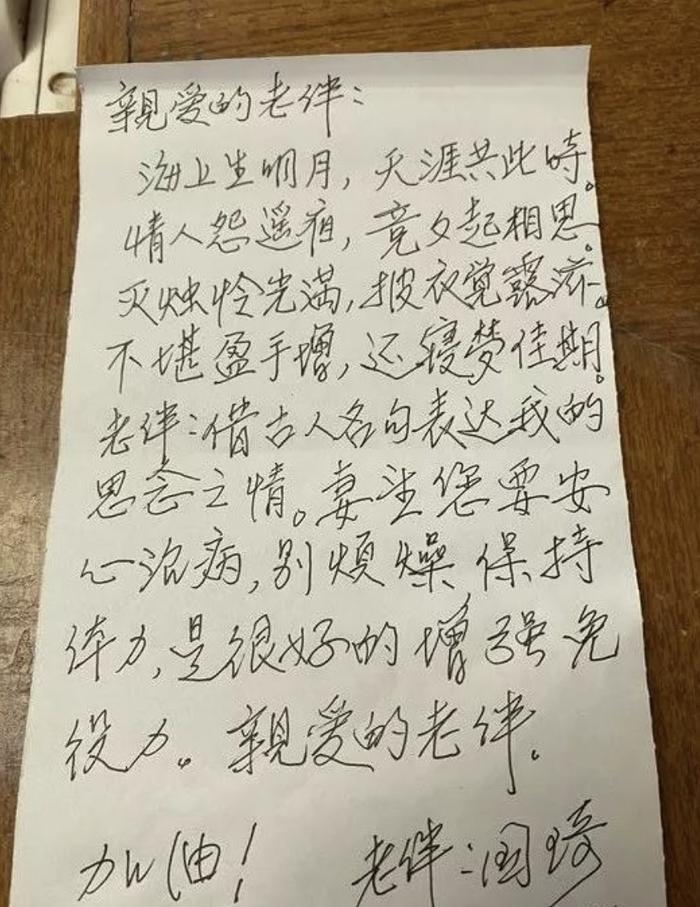 親爱的老伴：
海上生明月，天涯共此時。
情人怨遥夜，竟夕起相思。
灭烛怜光满，披衣觉露滋。
不堪盈手增，还寝梦佳期。
老伴：借古人名句表达我的
思念之情。妻望您要安
心治病，别烦燥，保持
体力，是很好的增强免
役力。親爱的老伴。
加油！ 老伴：国琦